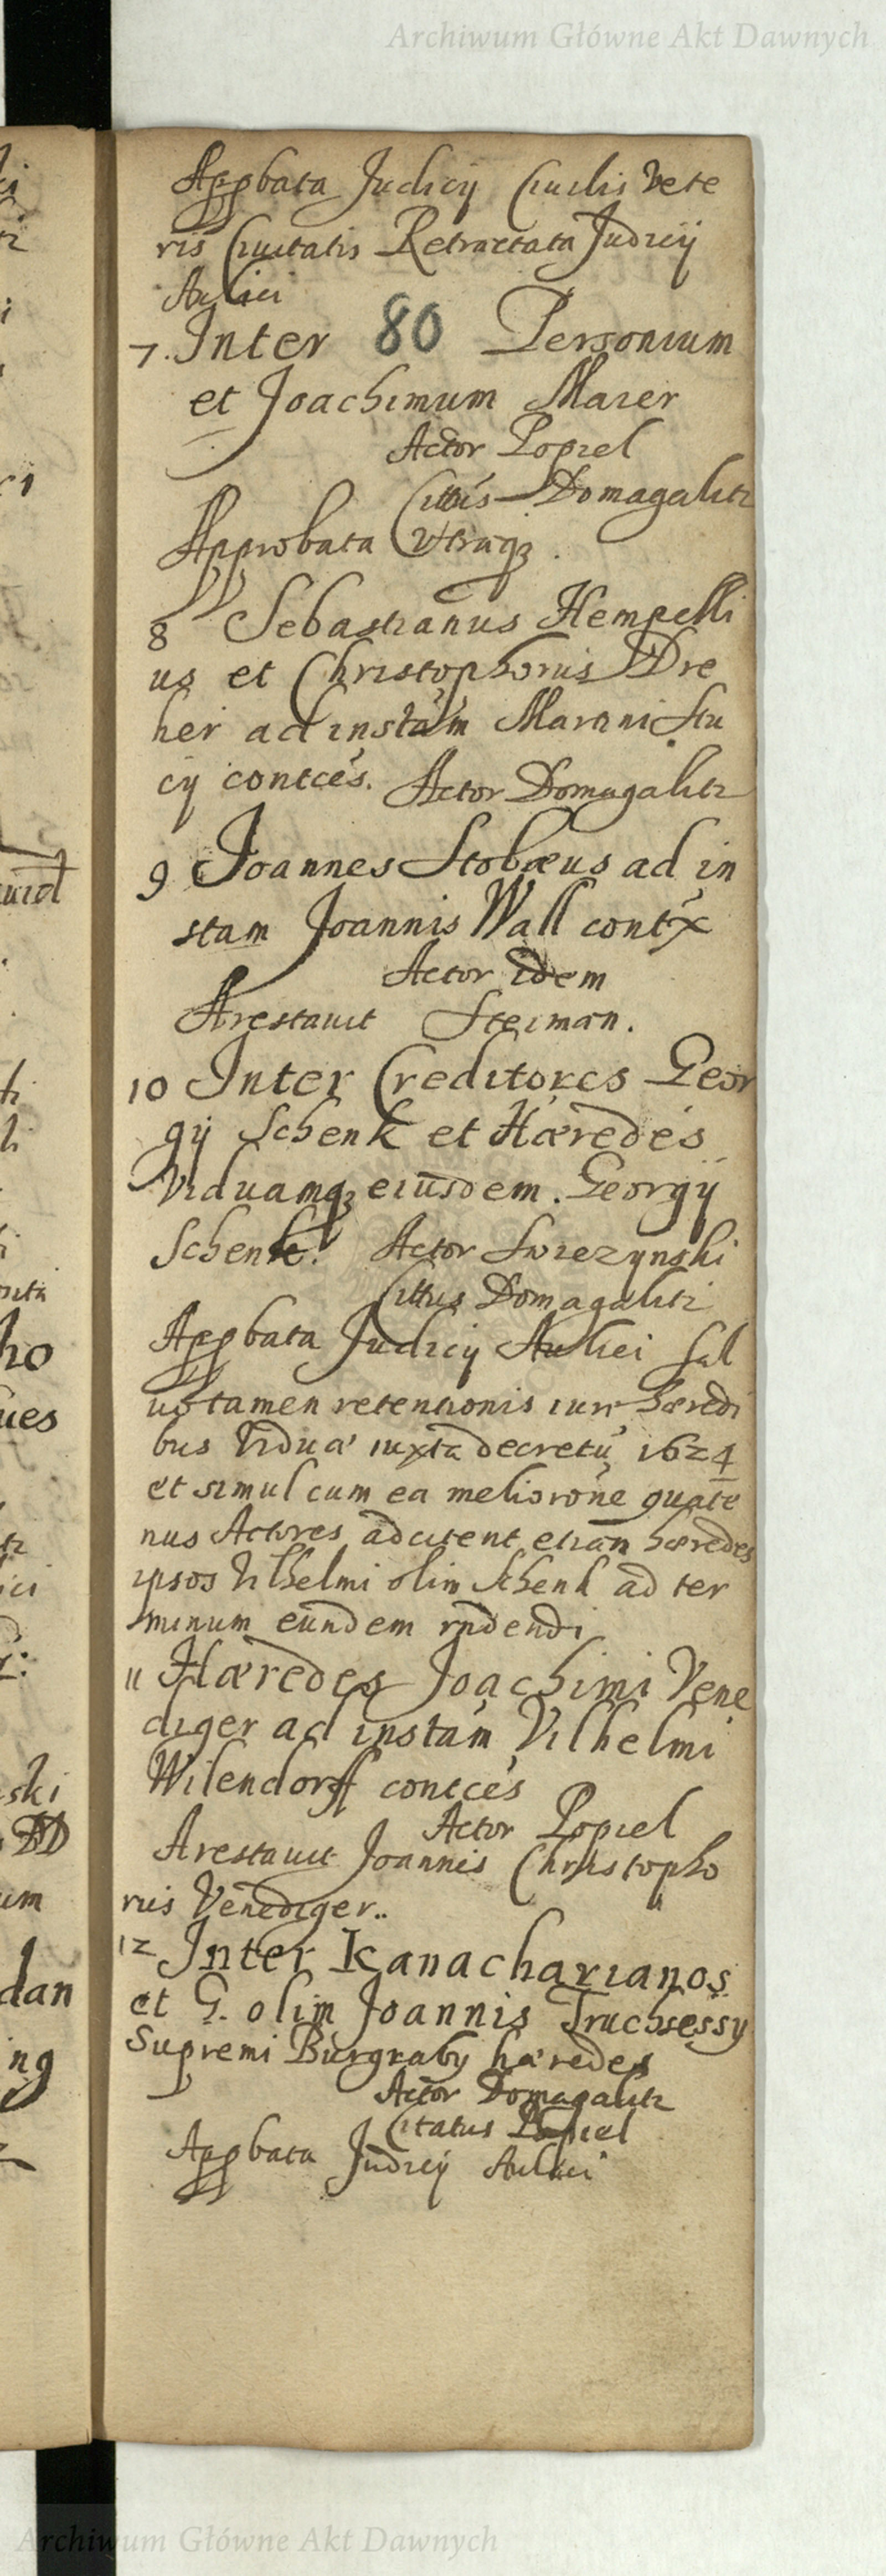 Archiwum Główne Akt Dawnych
Appbata Judicij Ciuilis Vete
ris Ciuitatis Retractata Judicij
Aulici
80
7. Inter Personium
et Joachimum Maier
Actor Popiel
Cittus Domagalitz
Approbata Vtraq3.
8 Sebastianus Hempelli
us et Christophorus Dre
her ad instam Martini Stu
cij contces. Actor Domagalitz
9 Joannes Stobæus ad in
stam Joannis Wall contx
Actor idem
Arestauit Steiman.
10 Inter Creditores Geor
gij Schenk et Hæredes
Viduamq3 eiusdem. Georgij
Schenk. Actor Swiezynski
Cittus Domagalitz
Appbata Judicij Aulici sal
uo tamen retentionis iure hæredi
bus Viduæ iuxta decretu 1624
et simul cum ea meliorone quate
nus Actores adcitent etiam hæredes
ipsos Vilhelmi olim Schenk ad ter
minum eundem rndendi
11 Hæredes Joachimi Vene
diger ad instam Vilhelmi
Wilendorff contces
Actor Popiel
Arestauit Joannis Christopho
rus Venediger..
12 Inter Kanacharianos
et G. olim Joannis Truchsessy
Supremi Burgraby hæredes
Actor Domagalitz
Citatus Popiel
Appbata Judicij Aulici
Archiwum Główne Akt Dawnych